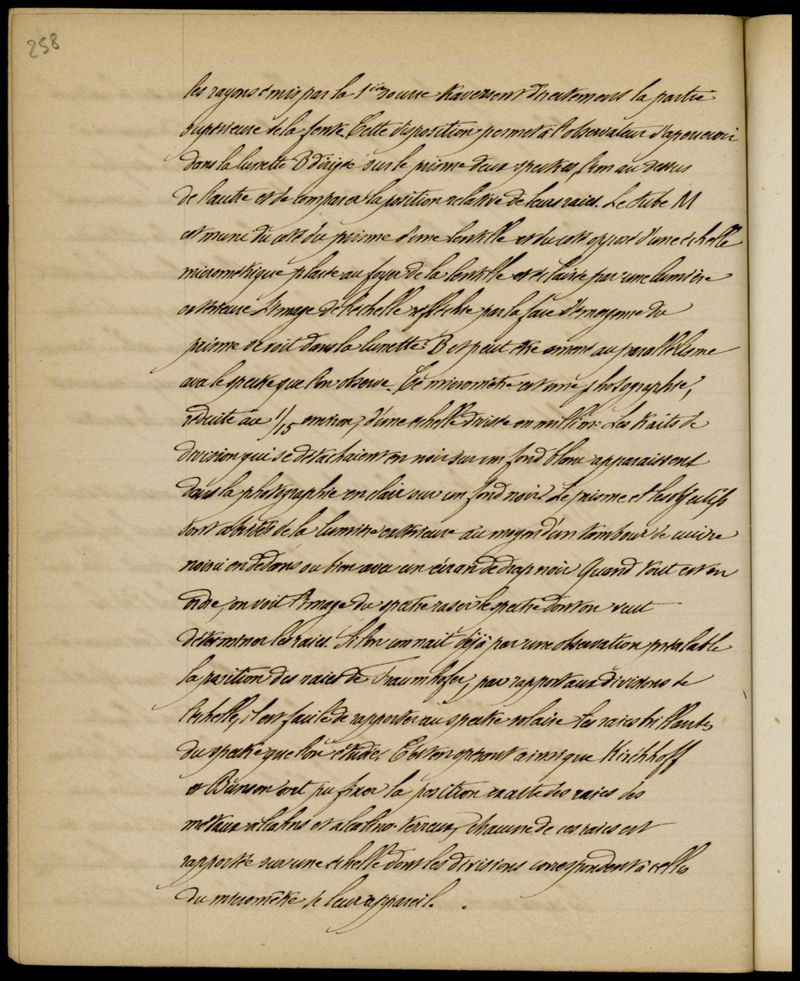 258
les rayons émis par la 1ière source traversent directement la partie
supérieure de la fente. Cette disposition permet à l'observateur d'apercevoir
dans la lunette B dirigée sur le prisme deux spectres, l'un au dessus
de l'autre et de comparer la position relative de leurs raies. Le tube M
est muni du côté du prisme d'une lentille et du côté opposé d'une échelle
micrométrique placée au foyer de la lentille et éclairée par une lumière
extérieure. L'image de l'échelle réfléchie par la face d'émergence du
prisme se voit dans la lunette B et peut être amené au parallélisme
avec le spectre que l'on observe. Ce micromètre est une photographie,
réduite au 1/15 environ, d'une échelle divisée en millim: Les traits de
division qui se détachaient en noir sur un fond blanc apparaissent
dans la photographie en clair sur un fond noir. Le prisme et les objectifs
sont abrités de la lumière extérieure au moyen d'un tambour de cuivre
noirci en dedans ou bien avec un écran de drap noir. Quand tout est en
ordre, on voit l'image du spectre raser le spectre dont on veut
déterminer les raies. Si l'on connait déjà par une observation préalable
la position des raies de Fraunhofer, par rapport aux divisions de
l'échelle, il est facile de rapporter au spectre solaire les raies brillantes
du spectre que l'on étudie. C'est en opérant ainsi que Kirchhoff
et Bunsen ont pu fixer la position exacte des raies des
métaux alcalins et alcalino-terreux, chacune de ces raies est
rapportée sur une échelle dont les divisions correspondent à celles
du micromètre de leur appareil.